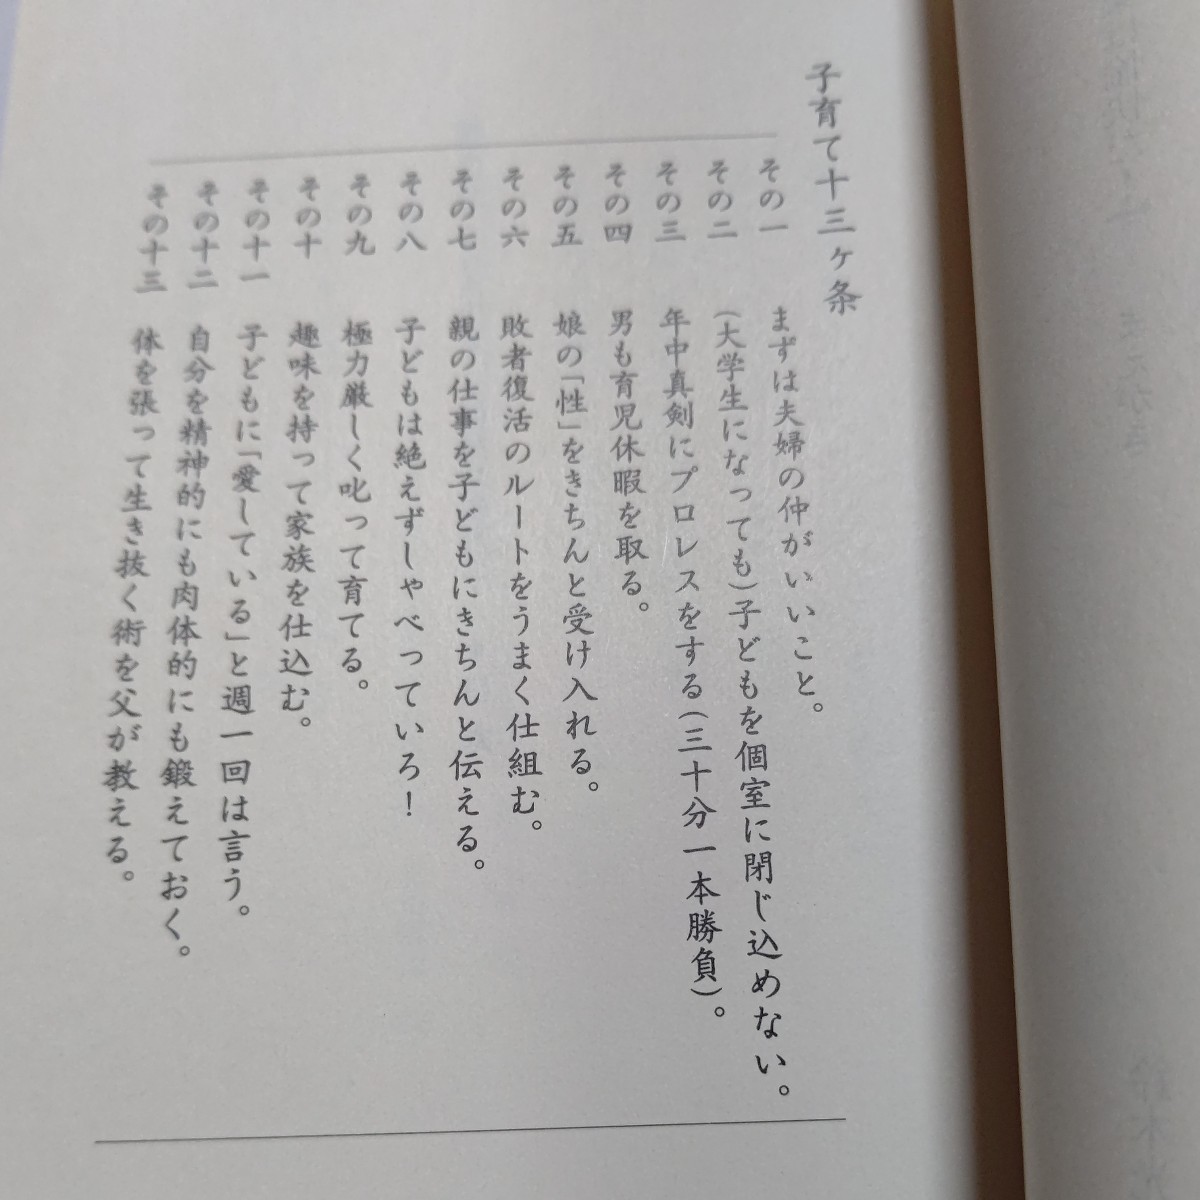 子育て十三ヶ条
その一 まずは夫婦の仲がいいこと。
その二 (大学生になっても)子どもを個室に閉じ込めない。
その三 年中真剣にプロレスをする(三十分一本勝負)。
その四 男も育児休暇を取る。
その五 娘の「性」をきちんと受け入れる。
その六 敗者復活のルートをうまく仕組む。
その七 親の仕事を子どもにきちんと伝える。
その八 子どもは絶えずしゃべっていろ!
その九 極力厳しく叱って育てる。
その十 趣味を持って家族を仕込む。
その十一 子どもに「愛している」と週一回は言う。
その十二 自分を精神的にも肉体的にも鍛えておく。
その十三 体を張って生き抜く術を父が教える。